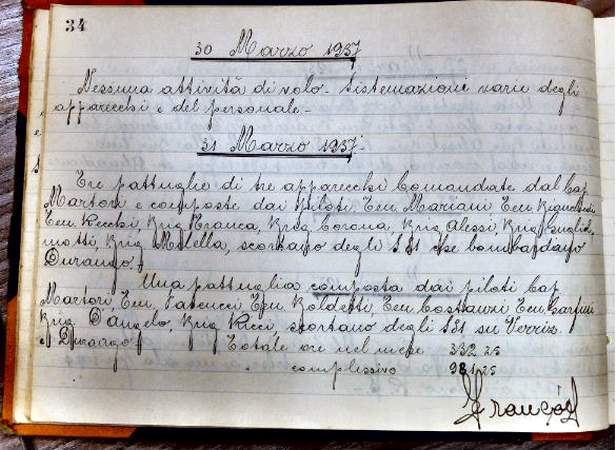 34
30 Marzo 1937
Nessuna attività di volo - Sistemazioni varie degli
apparecchi e del personale -
31 Marzo 1937 -
Tre pattuglie di tre apparecchi Comandate dal Cap
Martori e composte dai piloti Ten Mariani Ten
Ten Recchi, Brig Branca, Brig Corona, Brig Alessi, Brig Gugliel
motti, Brig Milella, scortano degli S81 che bombardano
Durango.
Una pattuglia composta dai piloti Cap
Martori Ten Ten Ten Ten
Brig D'Angelo, Brig Ricci, scortano degli S81 su
e Durango Totale ore nel mese 332 25
" complessivo 981 25